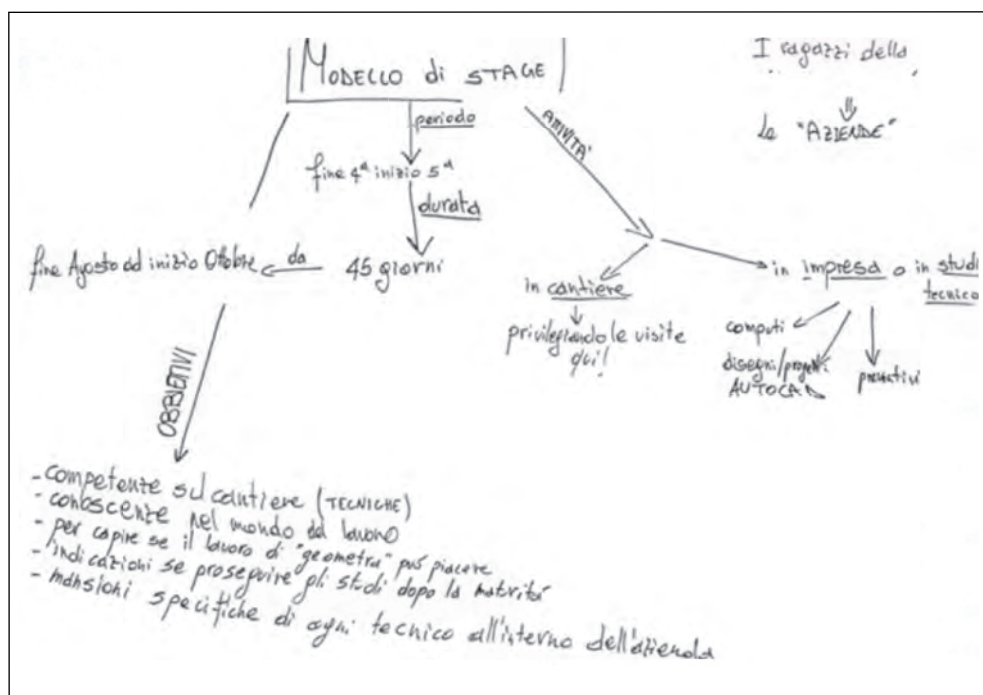 MODELLO di STAGE
I ragazzi della
le "AZIENDE"
periodo
fine 4ª inizio 5ª
durata
45 giorni
da
fine Agosto ad inizio Ottobre
ATTIVITA'
in cantiere
privilegiando le visite
qui!
in impresa o in studi
tecnico
computi
disegni/progetti
AUTOCAD
preventivi
OBBIETTIVI
- competenze sul cantiere (TECNICHE)
- conoscenze nel mondo del lavoro
- per capire se il lavoro di "geometra" può piacere
- indicazioni se proseguire gli studi dopo la maturità
- mansioni specifiche di ogni tecnico all'interno dell'azienda